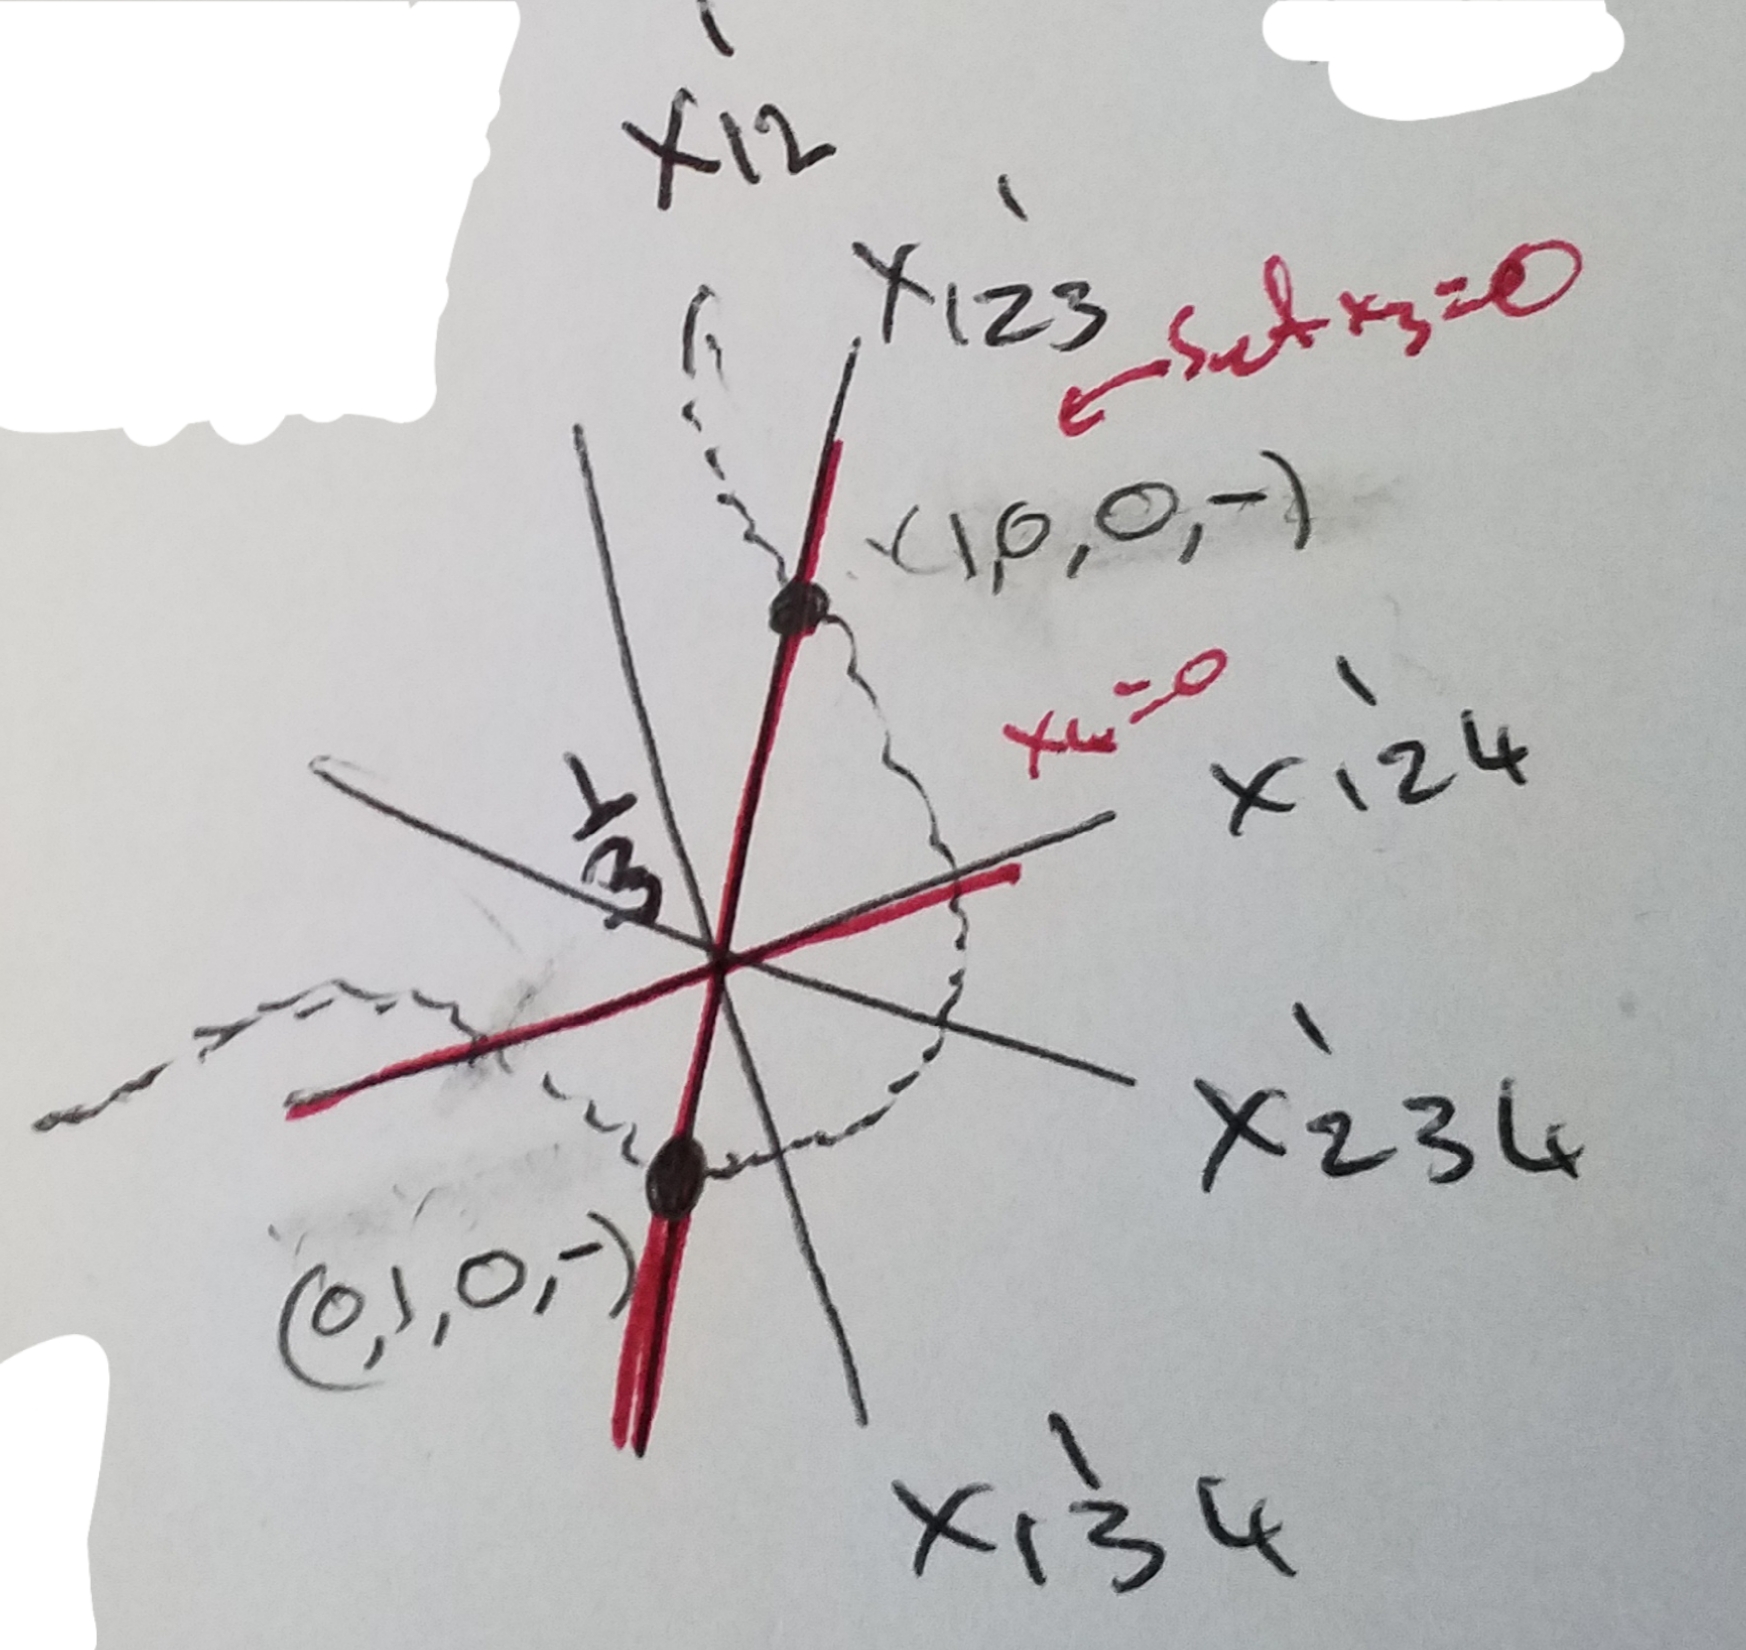 X12
X123
Set x3=0
(1,0,0,-)
x4=0
X124
1/3
X234
(0,1,0,-)
X134